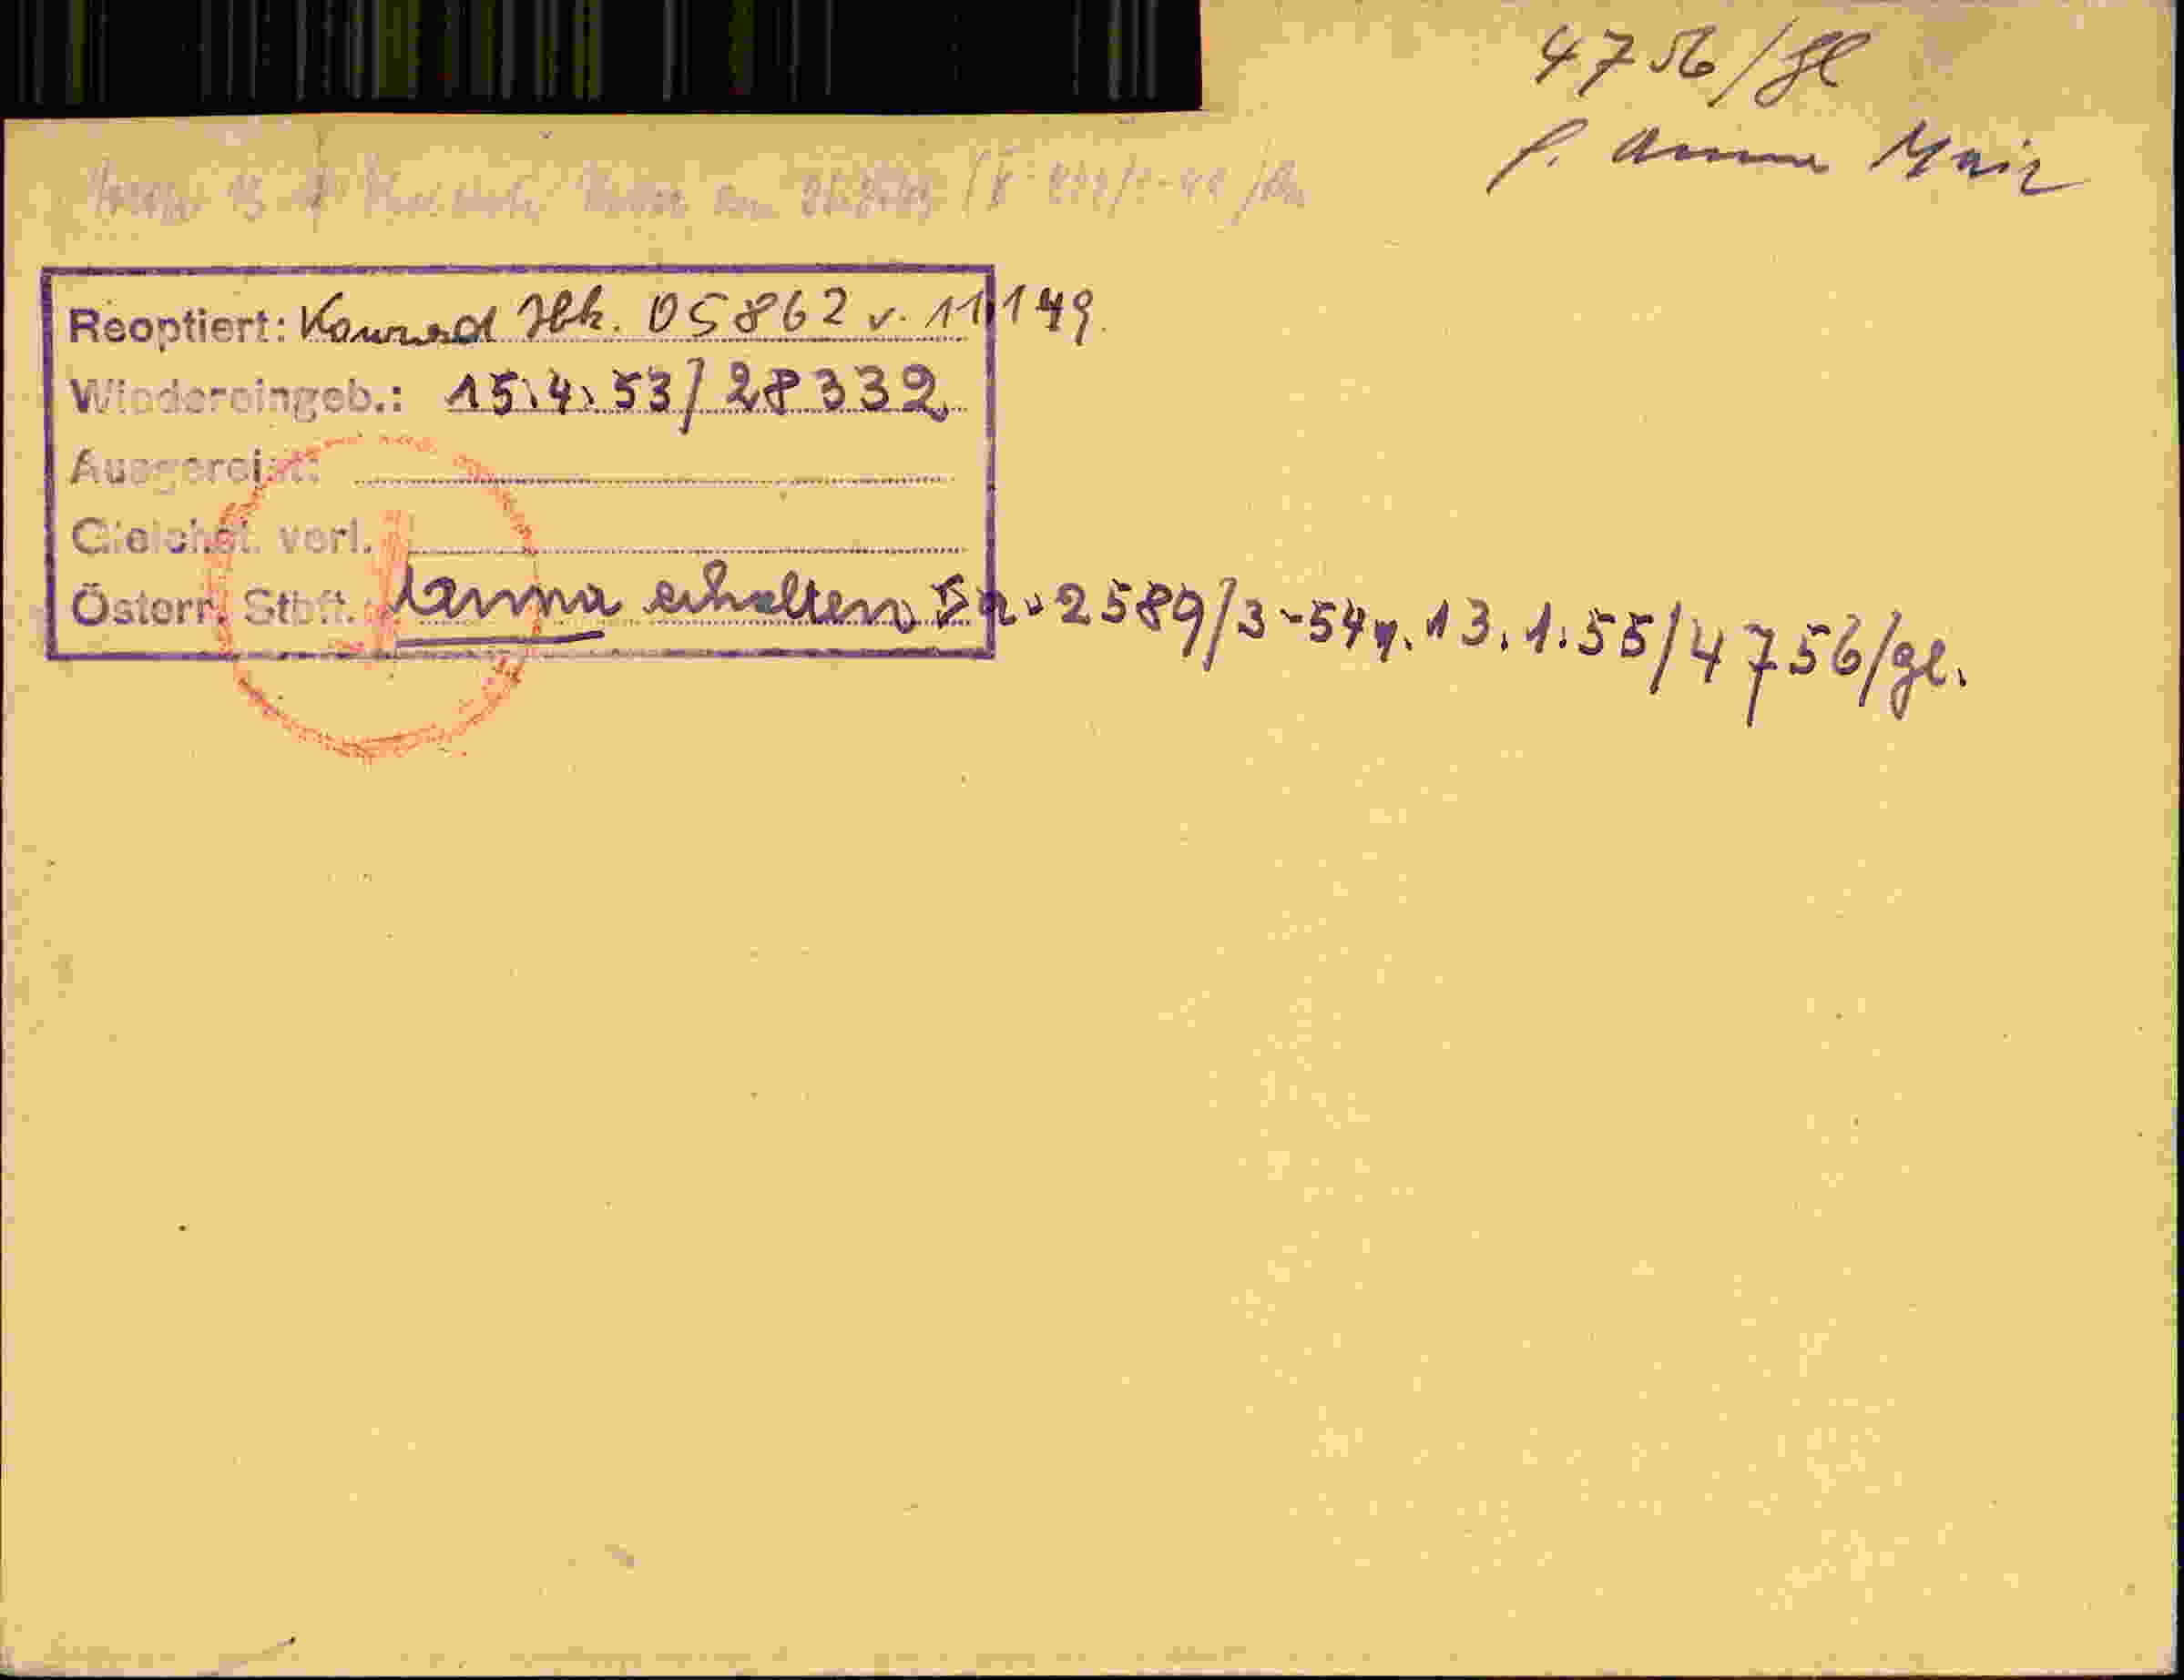 4756/gl
f. Anna Mair
Reoptiert: Konrad Ibk. 05862 v. 11.1.49.
Wiedereingeb.: 15.4.53/28332
Ausgereist:
Gleichst. verl.
Österr. Stbft. Anna erhalten 2589/3-54 v. 13.1.55/4756/gl.